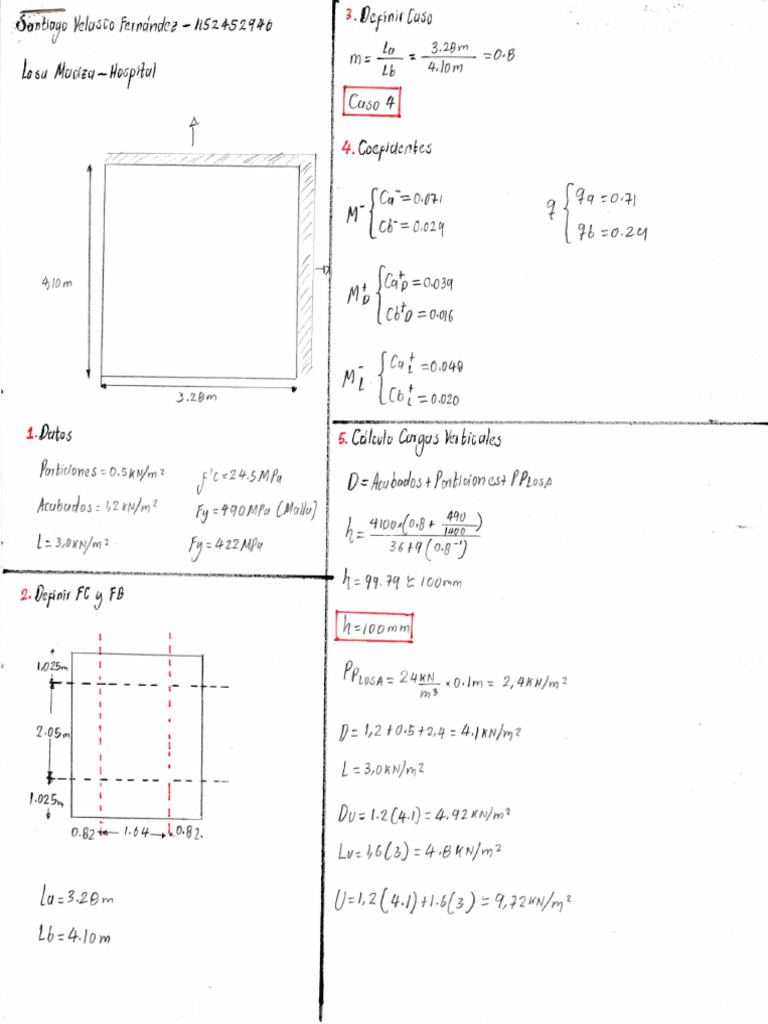 Santiago Velasco Fernández - 1152452940
Losa Maciza - Hospital
4,10 m
3.28m
1. Datos
Particiones = 0.5 KN/m²
f'c = 24.5 MPa
Acabados = 1,2 KN/m²
Fy = 490 MPa (Malla)
L = 3,0 KN/m²
Fy = 422 MPa
2. Definir FC y FB
1,025m
2.05m
1.025m
0.82 1.64 0.82.
La = 3.28 m
Lb = 4.10 m
3. Definir Caso
m = La/Lb = 3.28m/4.10m = 0.8
Caso 4
4. Coeficientes
M⁻ { Ca⁻ = 0.071
Cb⁻ = 0.029
q { qa = 0.71
qb = 0.29
M⁺D { Ca⁺D = 0.039
Cb⁺D = 0.016
M⁻L { Ca⁺L = 0.048
Cb⁺L = 0.020
5. Cálculo Cargas Verticales
D = Acabados + Particiones + PPLOSA
h = 4100*(0.8 + 490/1400) / 36 + 9(0.8⁻¹)
h = 99.79 ≅ 100mm
h = 100 mm
PPLOSA = 24 KN/m³ × 0.1m = 2,4 KN/m²
D = 1,2 + 0.5 + 2,4 = 4.1 KN/m²
L = 3,0 KN/m²
DU = 1.2(4.1) = 4.92 KN/m²
LU = 1,6(3) = 4.8 KN/m²
U = 1,2(4.1) + 1.6(3) = 9,72 KN/m²